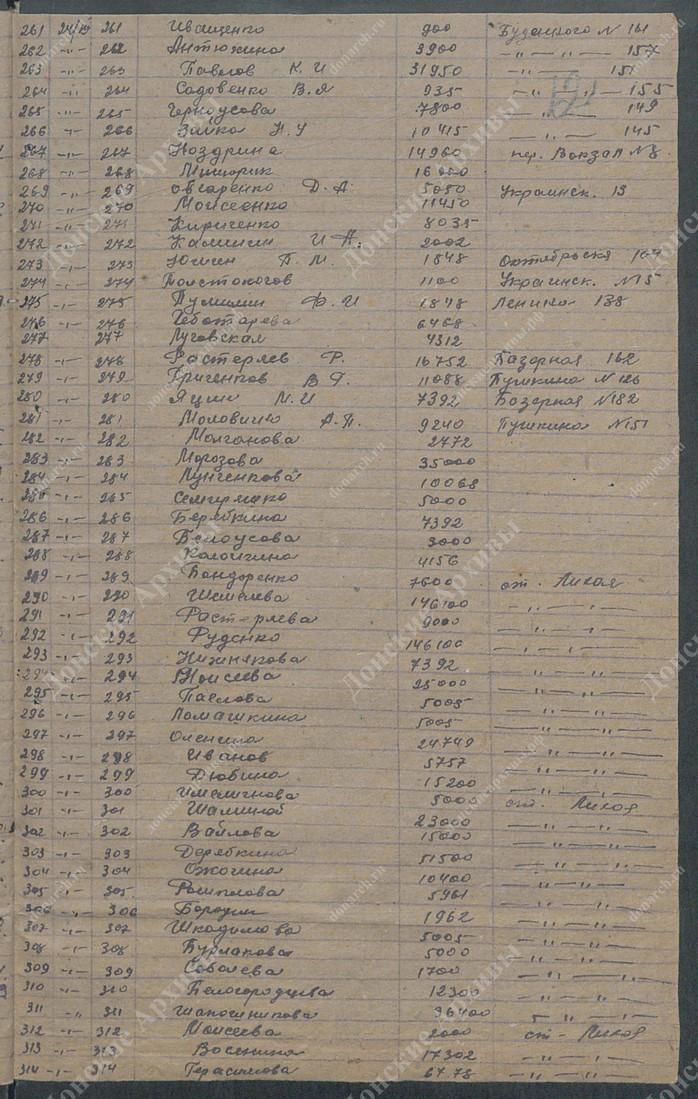 261 24/IV 261 Иващенко 900 Буденного N 161
262 -"- 262 Антюхина 3900 -"- -"- 157
263 -"- 263 Павлов К. И 31950 -"- 151
264 -"- 264 Садовенко В. Я 935 -"- -"- 155
265 -"- 265 Черноусова 7800 -"- 149
266 -"- 266 Зайка Н. У 10415 -"- 145
267 -"- 267 Ноздрина 14960 пер. Вокзал N8.
268 -"- 268 Мишурик
269 -"- 269 Овчаренко Д. А. 5050 Украинск. 13
270 -"- 270 Моисеенко 11450
271 -"- 271 Кириченко 8035
272 -"- 272 Калинин И А. 2002
273 -"- 273 П. М. 1848 Октябрьская 164
274 -"- 274 Толстоногов 1100 Украинск. N15
275 -"- 275 Ф. И 1848 Ленина 138
276 -"- 276 Чеботарева 6468
277 277 Луговская 4312
278 -"- 278 Растеряев Р. 16752 Базарная 162
279 -"- 279 В. 11088 Пушкина N 126
280 -"- 280 Яцин М. И 7392 Базарная N 182
281 -"- 281 А. П. 9240 Пушкина N151
282 -"- 282 Молчанова 2772
283 -"- 283 Морозова 35000
284 -"- 284 Лунченкова 10068
285 -"- 285 5000
286 -"- 286 7392
287 -"- 287 Белоусова 3000
288 -"- 288 Калашина 4156
289 -"- 289 Бондаренко 7600 ст. Лихая
290 -"- 290 Шемелева 146100 -"-"-
291 -"- 291 Растеряева 9000 -"-"-
292 -"- 292 Руденко 146100 -"-"-
293 -"- 293 Нижнякова 7392 -"-"-
294 -"- 294 Моисеева 25000 -"-"-
295 -"- 295 Павлова 5005 -"-"-
296 -"- 296 Ломашкина 5005 -"-"-
297 -"- 297 Оленина 24749 -"-"-
298 -"- 298 Иванов 5757 -"-"-
299 -"- 299 Дюбина 15200 -"-"-
300 -"- 300 5000 ст. Лихая
301 -"- 301 23000 -"-"-
302 -"- 302 Вайлова 15000 -"-"-
303 -"- 303 Дерябкина 51500 -"-"-
304 -"- 304 Ожогина 10400 -"-"-
305 -"- 305 5961 -"-"-
306 -"- 306 Бородин 1962 -"-"-
307 -"- 307 5005 -"-"-
308 -"- 308 Бурлакова 5000 -"-"-
309 -"- 309 Соволева 1700 -"-"-
310 -"- 310 Белогородцева 12300 -"-"-
311 -"- 311 Шапошникова 36400 -"-"-
312 -"- 312 Моисеева 2000 ст - Лихая
313 -"- 313 17302 -"-"-
314 -"- 314 Герасимова 67.78 -"-"-
Донские Архивы
donarch.ru